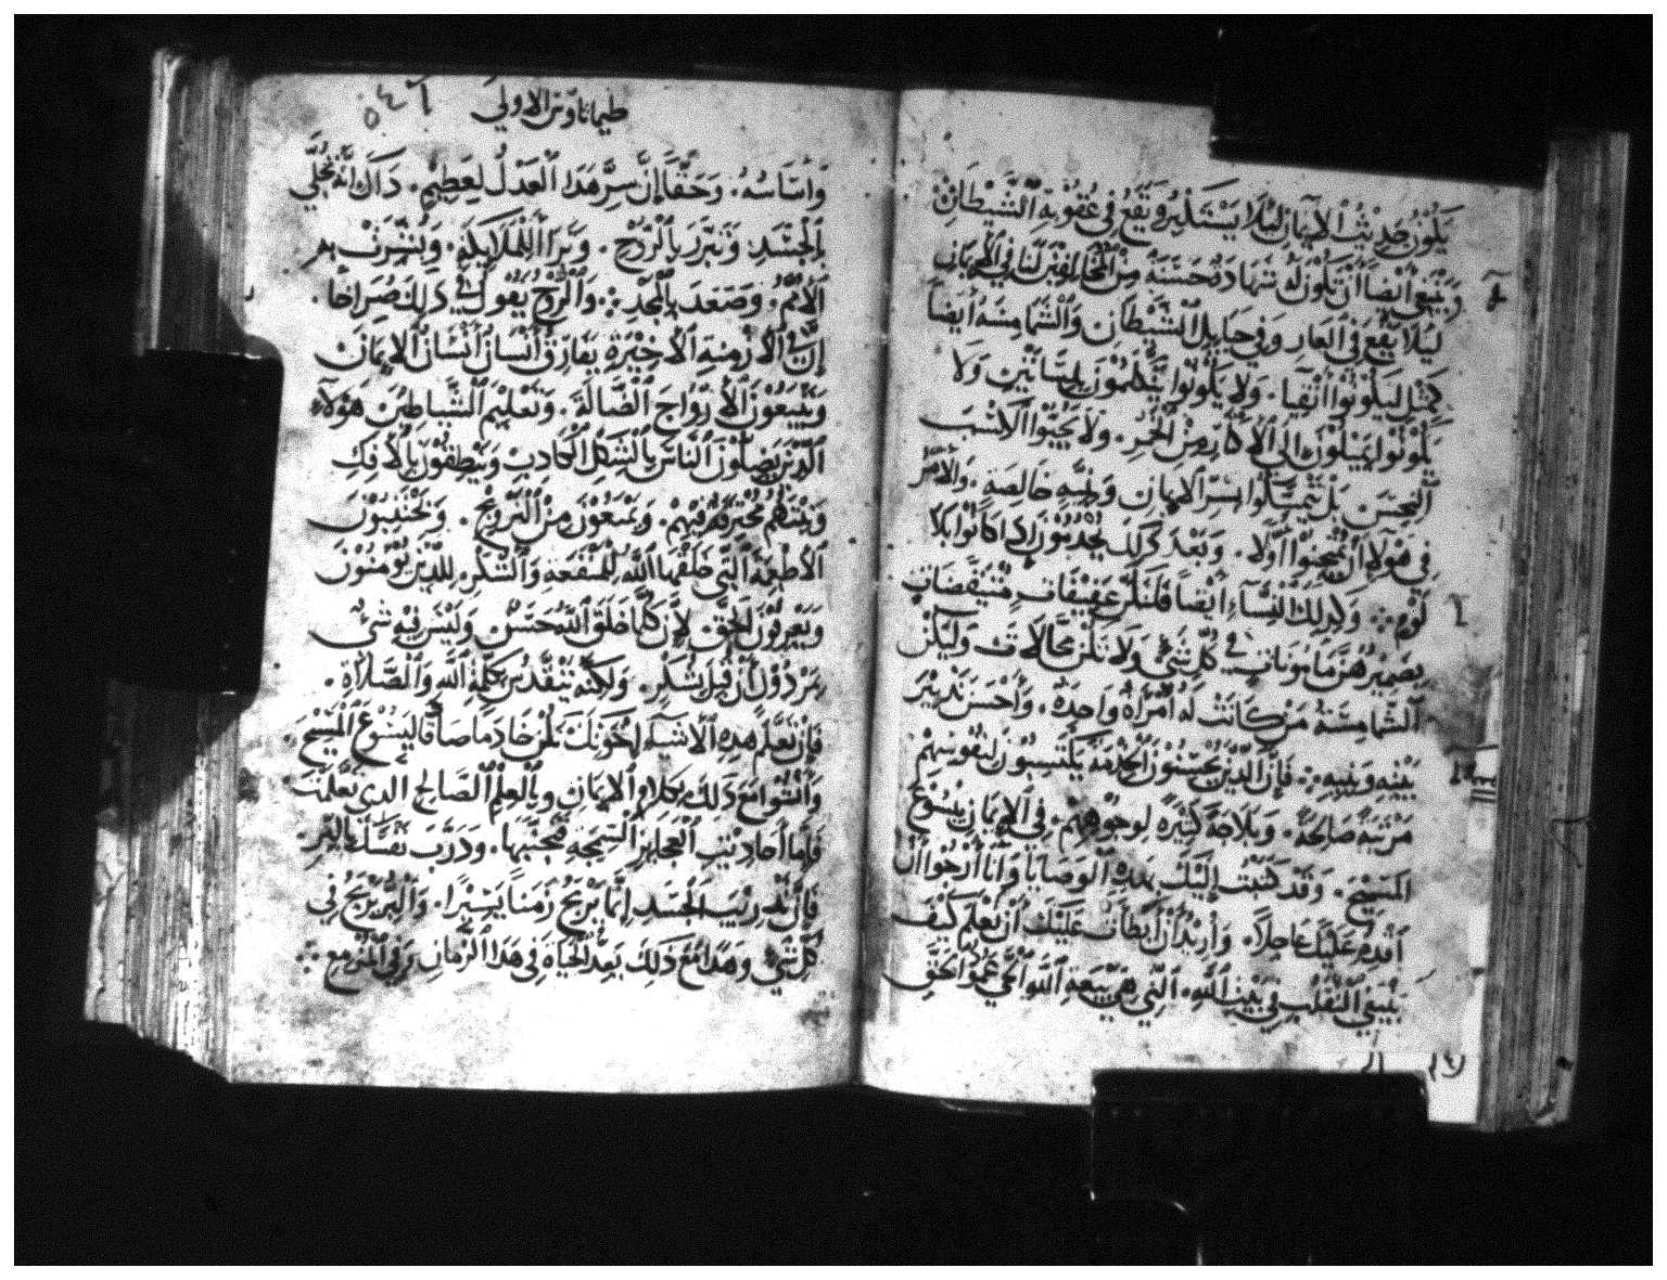 يكون حديث الايمان ليلا يستكبر ويقع في عقوبة الشيطان
وينبغي ايضا أن تكون له شهادة حسنة من المخالفين لنا في الايمان
ليلا يقع في العار وفي حبايل الشيطان والشمامسة أيضا
كمثل ليكونوا انقيا . ولا يكونوا يتكلمون بلسانين ولا
يكونوا يميلون الي الاكثار من الخمر . ولا يحبوا المكسب
النجس بل يتمسكوا بسر الايمان ونية خالصة . والامر
في هولاء ان يمتحنوا اولا . وبعد كذلك يخدمون إذا كانوا بلا
لوم ⁘ وكذلك النساء أيضا فلتكن عفيفات متيقضات
بضميرهن مامونات في كل شي ولا تكن محالات وليكن
الشمامسة من كانت له امراة واحدة . وأحسن تدبير
بيته وبنيه ⁘ فإن الذين يحسنون الخدمة يكتسبون لنفوسهم
مرتبة صالحة . وبلاجة كثيرة لوجوههم . في الايمان بيسوع
المسيح . وقد كتبت إليك بهذه الوصايا وأنا أرجوا أن
أقدم عليك عاجلا . وأريد أن أبطات عليك أن تعلم كيف
ينبغي التقلب في بيت الله . التي هي بيعة الله الحي عمود الحق
طيماتاوس الاولي
٥٤٦
وأساسه . وحقا إن سر هذا العدل لعظيم . ذاك انه تجلي
بالجسد وتبرر بالروح . وترا للملايكة . وبشرت به
الامم . وصعد بالمجد ⁘ والروح يقول في ذلك صراحا .
إن في الازمنة الاخيرة يفارق أنسان أنسان الايمان
ويتبعون الارواح الضالة . وتعليم الشياطين هولاء
الذين يضلون الناس بالشكل الكاذب وينطقون بالافك
ونيتهم محترقة فيهم . ويمنعون من التزويج . ويجتنبون
الاطعمة التي خلقها الله للمنفعة والشكر للذين يومنون
ويعرفون الحق لإن كلما خلق الله حسن وليس فيه شي
مرذول إن قبل بشكر . ولكنه يتقدس بكلمة الله والصلاة .
فإن تعلم هذه الاشياء لإخوتك تكن خادما صادقا ليسوع المسيح
وأنشوا مع ذلك بكلام الايمان وبالعلم الصالح الذي تعلمت
فأما أحاديث العجايز السمجة فجتنبها . ودرب نفسك بالبر
فإن تدريب الجسد إنما يربح زمنا يسيرا . والبر يربح في
كل شي وهذا مع ذلك بعد الحياة في هذا الزمان وفي المزمع ⁘